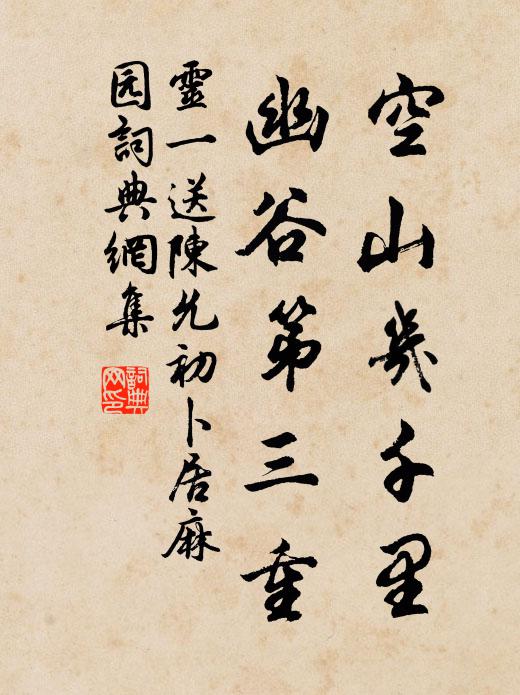 空山幾千里
幽谷第三重
靈一送陳允初卜居麻
园詞典網集
詞典网印